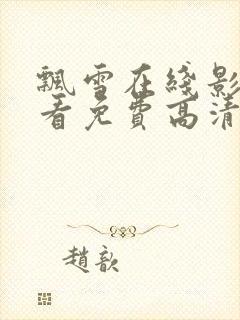 飄雪在綫影
看免費高清
趙歆